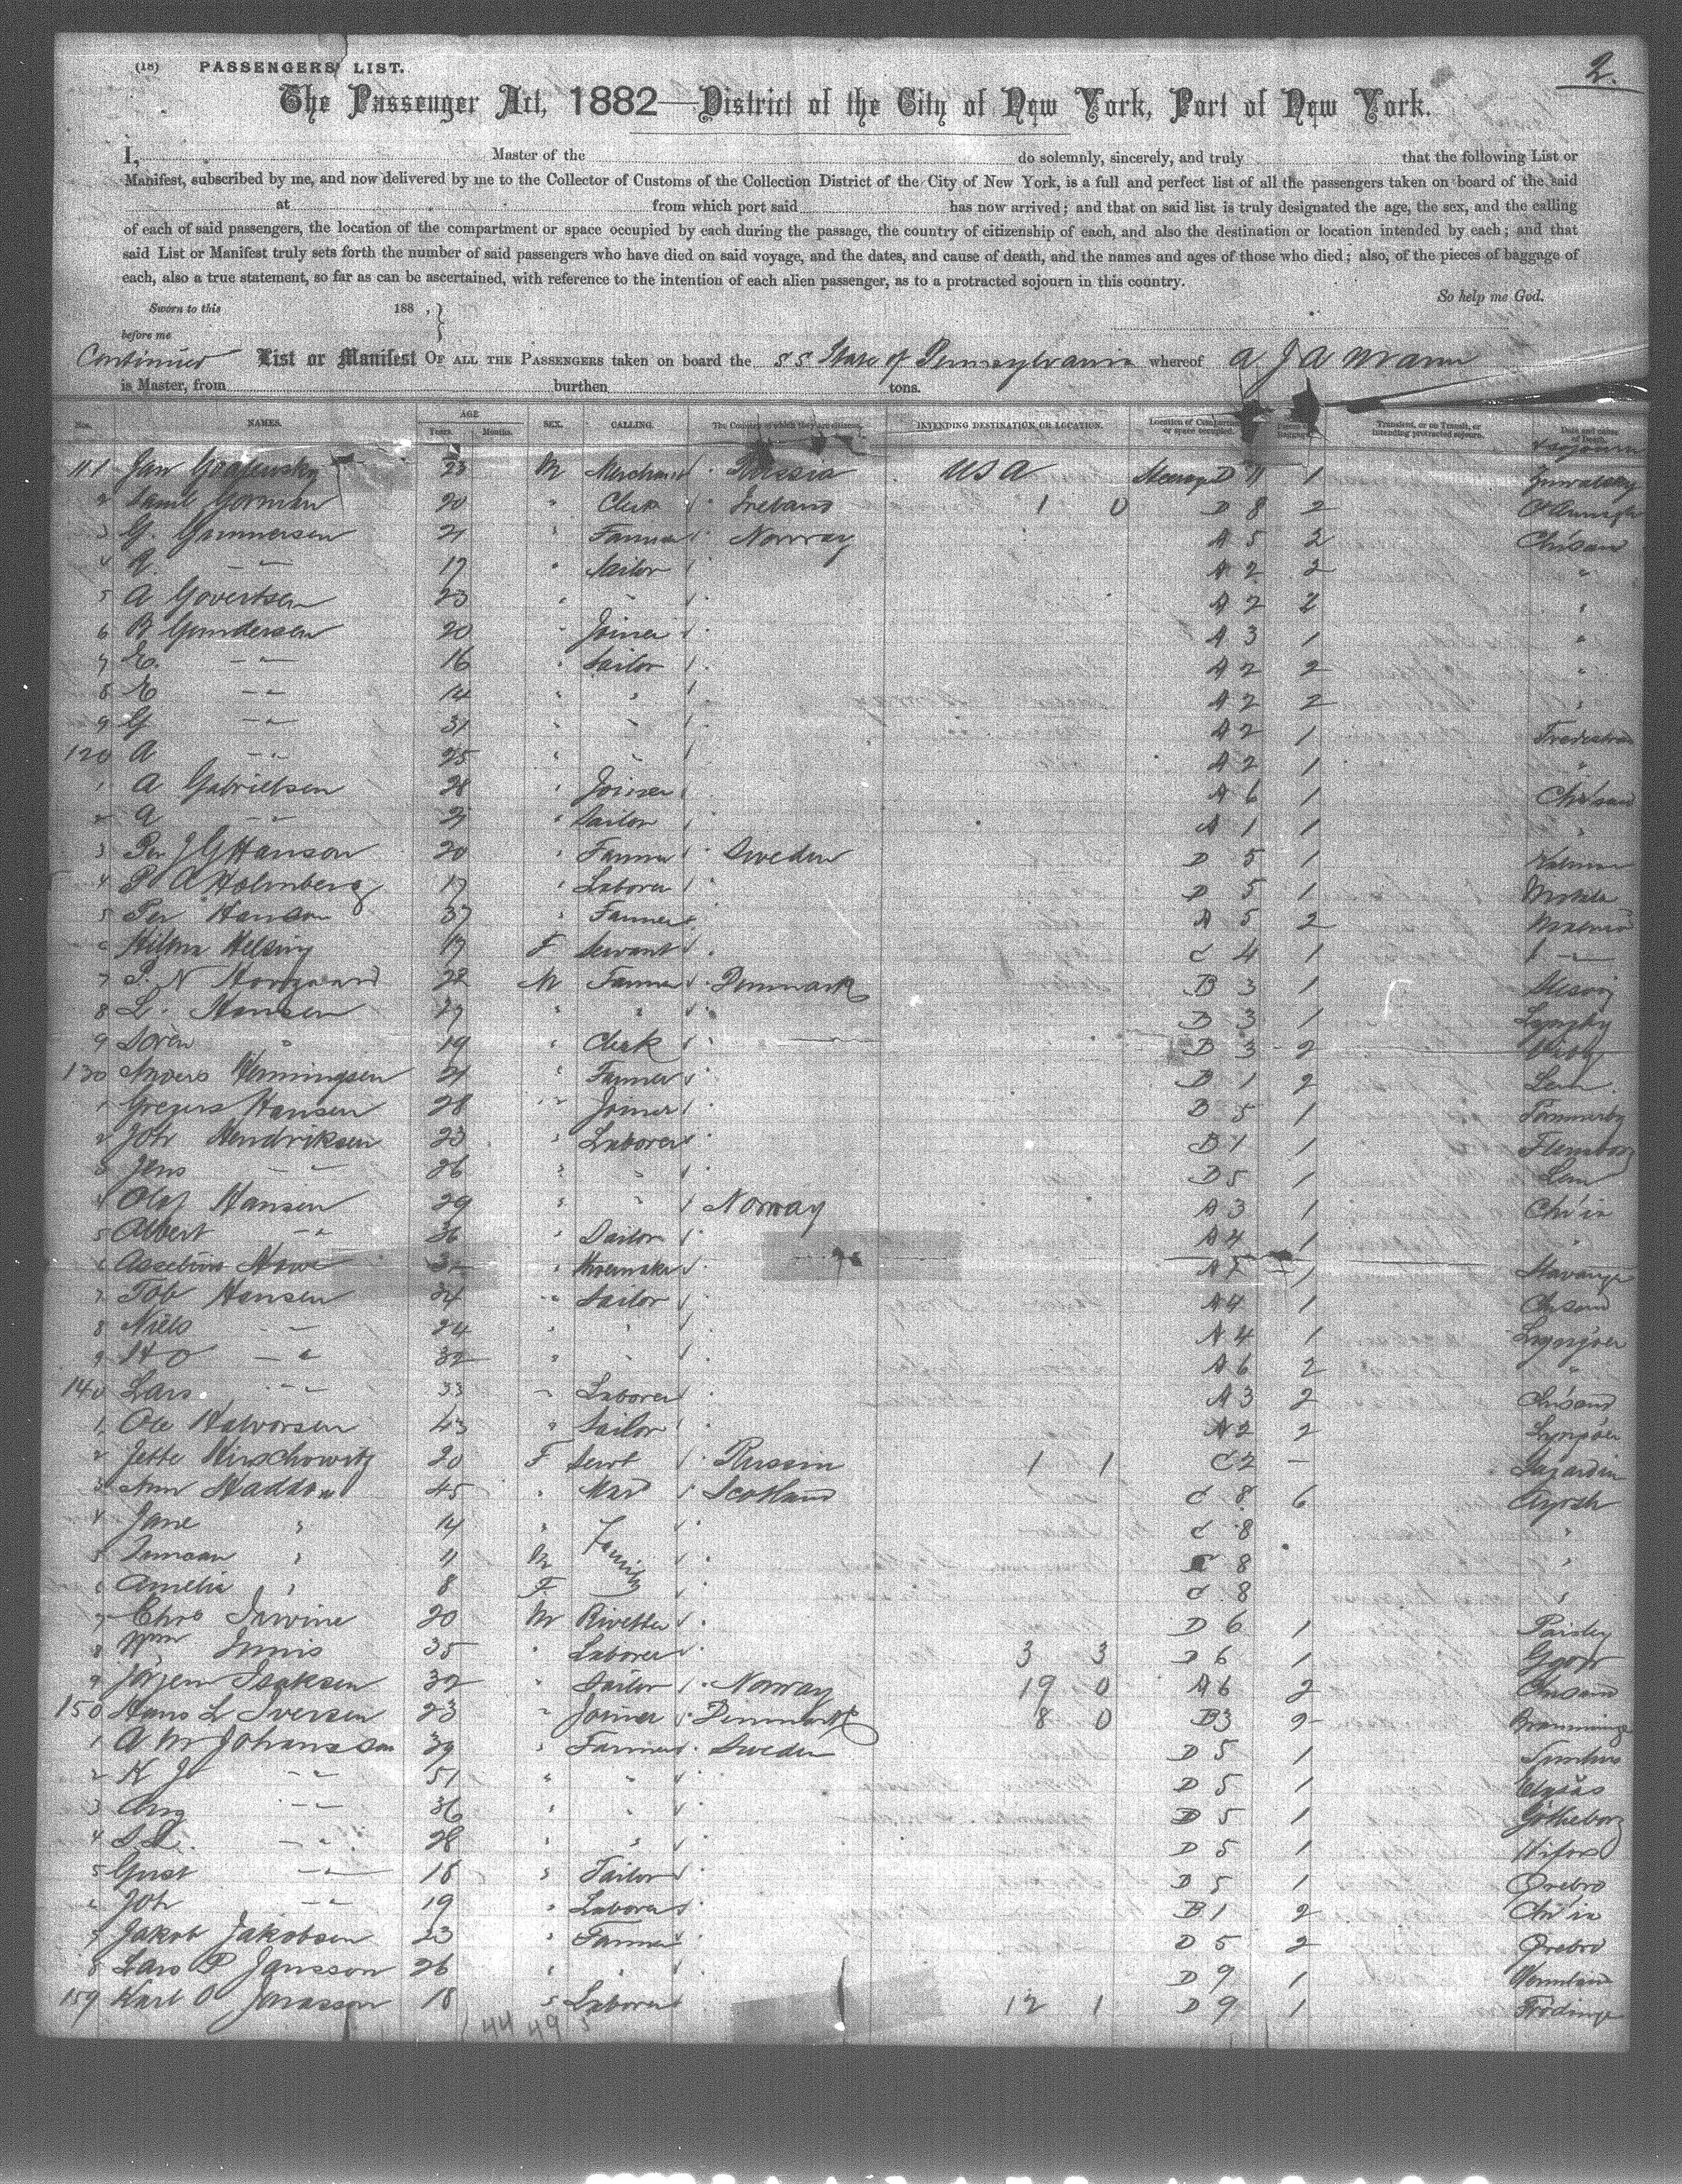 2.
(18) PASSENGERS' LIST.
The Passenger Act, 1882—District of the City of New York, Port of New York.
I, Master of the do solemnly, sincerely, and truly that the following List or
Manifest, subscribed by me, and now delivered by me to the Collector of Customs of the Collection District of the City of New York, is a full and perfect list of all the passengers taken on board of the said
at from which port said has now arrived; and that on said list is truly designated the age, the sex, and the calling
of each of said passengers, the location of the compartment or space occupied by each during the passage, the country of citizenship of each, and also the destination or location intended by each; and that
said List or Manifest truly sets forth the number of said passengers who have died on said voyage, and the dates, and cause of death, and the names and ages of those who died; also, of the pieces of baggage of
each, also a true statement, so far as can be ascertained, with reference to the intention of each alien passenger, as to a protracted sojourn in this country.
So help me God.
Sworn to this 188 , }
before me
Continued List or Manifest OF ALL THE PASSENGERS taken on board the SS State of Pennsylvania whereof A J A Mann
is Master, from burthen tons.
Nos. NAMES. AGE Years. Months. SEX. CALLING. The Country of which they are citizens. INTENDING DESTINATION OR LOCATION. Location of Compartment or space occupied. Pieces of Baggage. Transient, or in Transit, or intending protracted sojourn. Date and cause of Death.
111 Jan 23 M Merchant Russia USA Steerage D 11 1
2 Saml Gorman 20 " Clerk Ireland 1 0 D 8 2
3 G. Gunnersen 21 " Farmer Norway A 5 2 Ch'sand
4 R. —"— 17 " Sailor A 2 2 "
5 A Govertsen 23 " " A 2 2 "
6 B Gundersen 20 " Joiner A 3 1 "
7 E. —"— 16 " Sailor A 2 2 "
8 E —"— 14 " " A 2 2 "
9 G —"— 31 " " A 2 1
120 A —"— 25 " " A 2 1 "
1 A Gabrielsen 28 " Joiner A 6 1 Ch'sand
2 A —"— 21 " Sailor A 1 1 "
3 Per J G Hanson 20 " Farmer Sweden D 5 1 Kalmar
4 P A Holmberg 17 " Laborer D 5 1 Motala
5 Per Hanson 37 " Farmer A 5 2 Malmö
6 Hilma Helsing 17 F Servant C 4 1 —"—
7 P. N 22 M Farmer Denmark B 3 1
8 L. Hansen 27 " " B 3 1 Lyngby
9 Soren " 19 " Clerk B 3 2 Viby
130 Anders Henningsen 21 " Farmer B 1 2 Lem
1 Gregers Hansen 28 " Joiner B 5 1 Tømmerby
2 Joh Hendriksen 23 " Laborer B 1 1 Flensborg
3 Jens —"— 26 " " D 5 1 Lem
4 Olaf Hansen 29 " " Norway A 3 1 Ch'ia
5 Albert —"— 36 " Sailor A 4 1 "
6 " Shoemaker A 7 1 Stavanger
7 Tob Hansen 24 " Sailor A 4 1 Ch'sand
8 Niels —"— 24 " " A 4 1 Lyngöer
9 H O —"— 32 " " A 6 2 "
140 Lars —"— 33 " Laborer A 3 2 Ch'sand
1 Ole Halvorsen 43 " Sailor A 2 2 Lyngöer
2 Jette Hirschowitz 20 F Servt Russia 1 1 C 2 —
3 Ann Haddow 45 " Mar'd Scotland C 8 6 Ayrsh
4 Jane " 14 " Family C 8 "
5 Duncan " 11 M C 8 "
6 Amelia " 8 F C 8 "
7 Chas Irwine 20 M Rivetter D 6 1 Paisley
8 Wm Innis 35 " Laborer 3 3 D 6 1
9 Jörjen Isaksen 32 " Sailor Norway 19 0 A 6 2 Ch'sand
150 Hans L Iversen 23 " Joiner Denmark 8 0 B 3 2 Bramminge
1 A M Johansson 39 " Farmer Sweden D 5 1
2 K J —"— 51 " " D 5 1
3 Aug —"— 36 " " D 5 1 Götheborg
4 —"— 28 " " D 5 1
5 Gust —"— 18 " Tailor D 5 1 Örebro
6 Joh —"— 19 " Laborer B 1 2 Ch'ia
7 Jakob Jakobsen 23 " Farmer D 5 2 Örebro
8 Lars P Jansson 26 " " D 9 1 Wermland
159 Karl O Jonasson 18 " Laborer 12 1 D 9 1 Frödinge
44 49 5